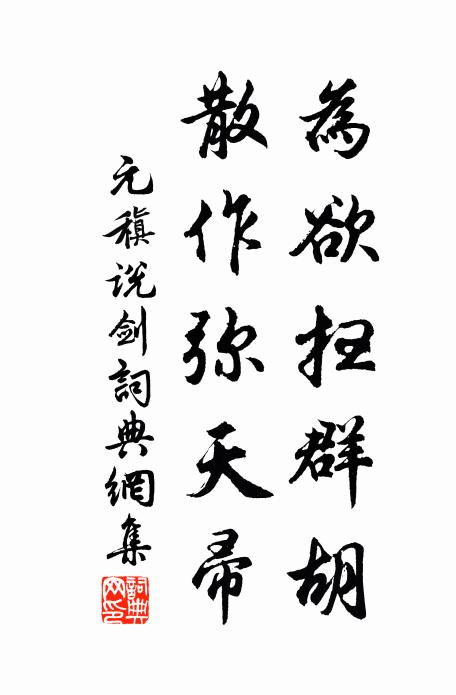 為欲扫群胡
散作弥天帚
元稹说剑詞典網集
詞典
网印